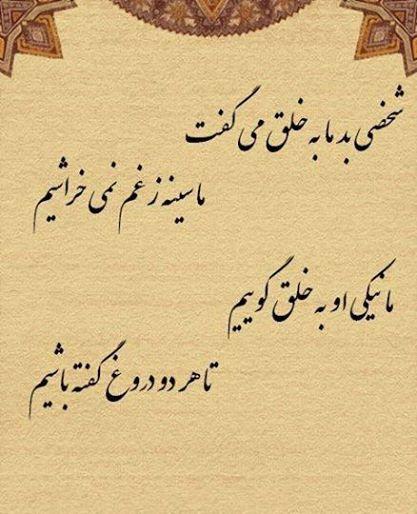 شخصی بد ما به خلق می گفت
ما سینه ز غم نمی خراشیم
ما نیکی او به خلق گوییم
تا هر دو دروغ گفته باشیم